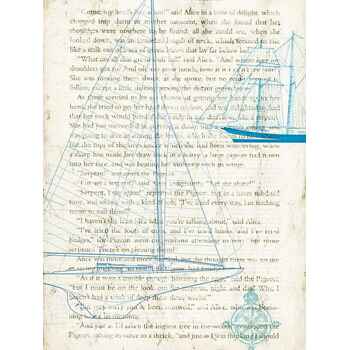 "Come, my head's free at last!" said Alice in a tone of delight, which
changed into alarm in another moment, when she found that her
shoulders were nowhere to be found: all she could see, when she
looked down, was an immense length of neck, which seemed to rise
like a stalk out of a sea of green leaves that lay far below her.
"What can all that green stuff be?" said Alice. "And where have my
shoulders got to? And oh, my poor hands, how is it I can't see you?"
She was moving them about as she spoke, but no result seemed to
follow, except a little shaking among the distant green leaves.
As there seemed to be no chance of getting her hands up to her
head, she tried to get her head down to them, and was delighted to find
that her neck would bend about easily in any direction, like a serpent.
She had just succeeded in curving it down into a graceful
but the tops of the trees under which she had been wandering, when
a sharp hiss made her draw back in a hurry: a large pigeon had flown
into her face, and was beating her violently with its wings.
"Serpent!" screamed the Pigeon.
"I'm not a serpent!" said Alice indignantly. "Let me alone!"
"Serpent, I say again!" repeated the Pigeon, but in a more subdued
tone, and added with a kind of sob, "I've tried every way, but nothing
seems to suit them!"
"I haven't the least idea what you're talking about," said Alice.
"I've tried the roots of trees, and I've tried banks, and I've tried
hedges," the Pigeon went on, without attending to her;
serpents! There's no pleasing them!"
Alice was more and more puzzled, but she thought there was no use
in saying anything more till the Pigeon had finished.
"As if it wasn't trouble enough hatching the eggs," said the Pigeon;
"but I must be on the look-out for serpents night and day! Why, I
haven't had a wink of sleep these three weeks!"
"I'm very sorry you've been annoyed," said Alice, who was beginning
"And just as I'd taken the highest tree in the wood," continued the
Pigeon, raising its voice to a shriek, "and just as I was thinking I should